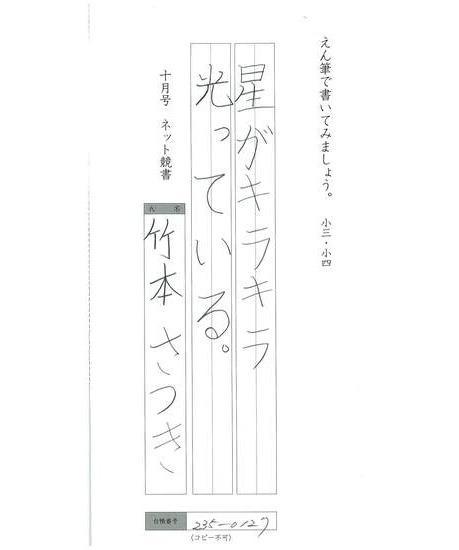 えん筆で書いてみましょう。 小三・小四
星がキラキラ
光っている。
十月号 ネット競書
氏名
竹本 さつき
台帳番号 235-0127
(コピー不可)